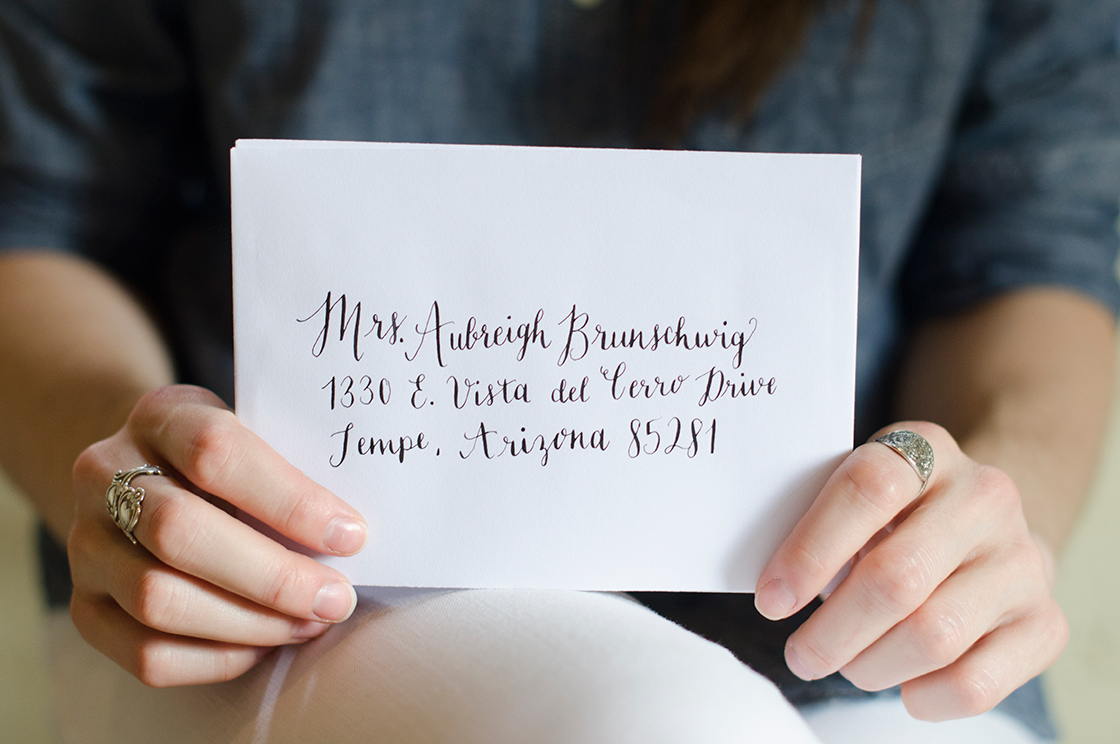 Mrs. Aubreigh Brunschwig
1330 E. Vista del Cerro Drive
Tempe, Arizona 85281